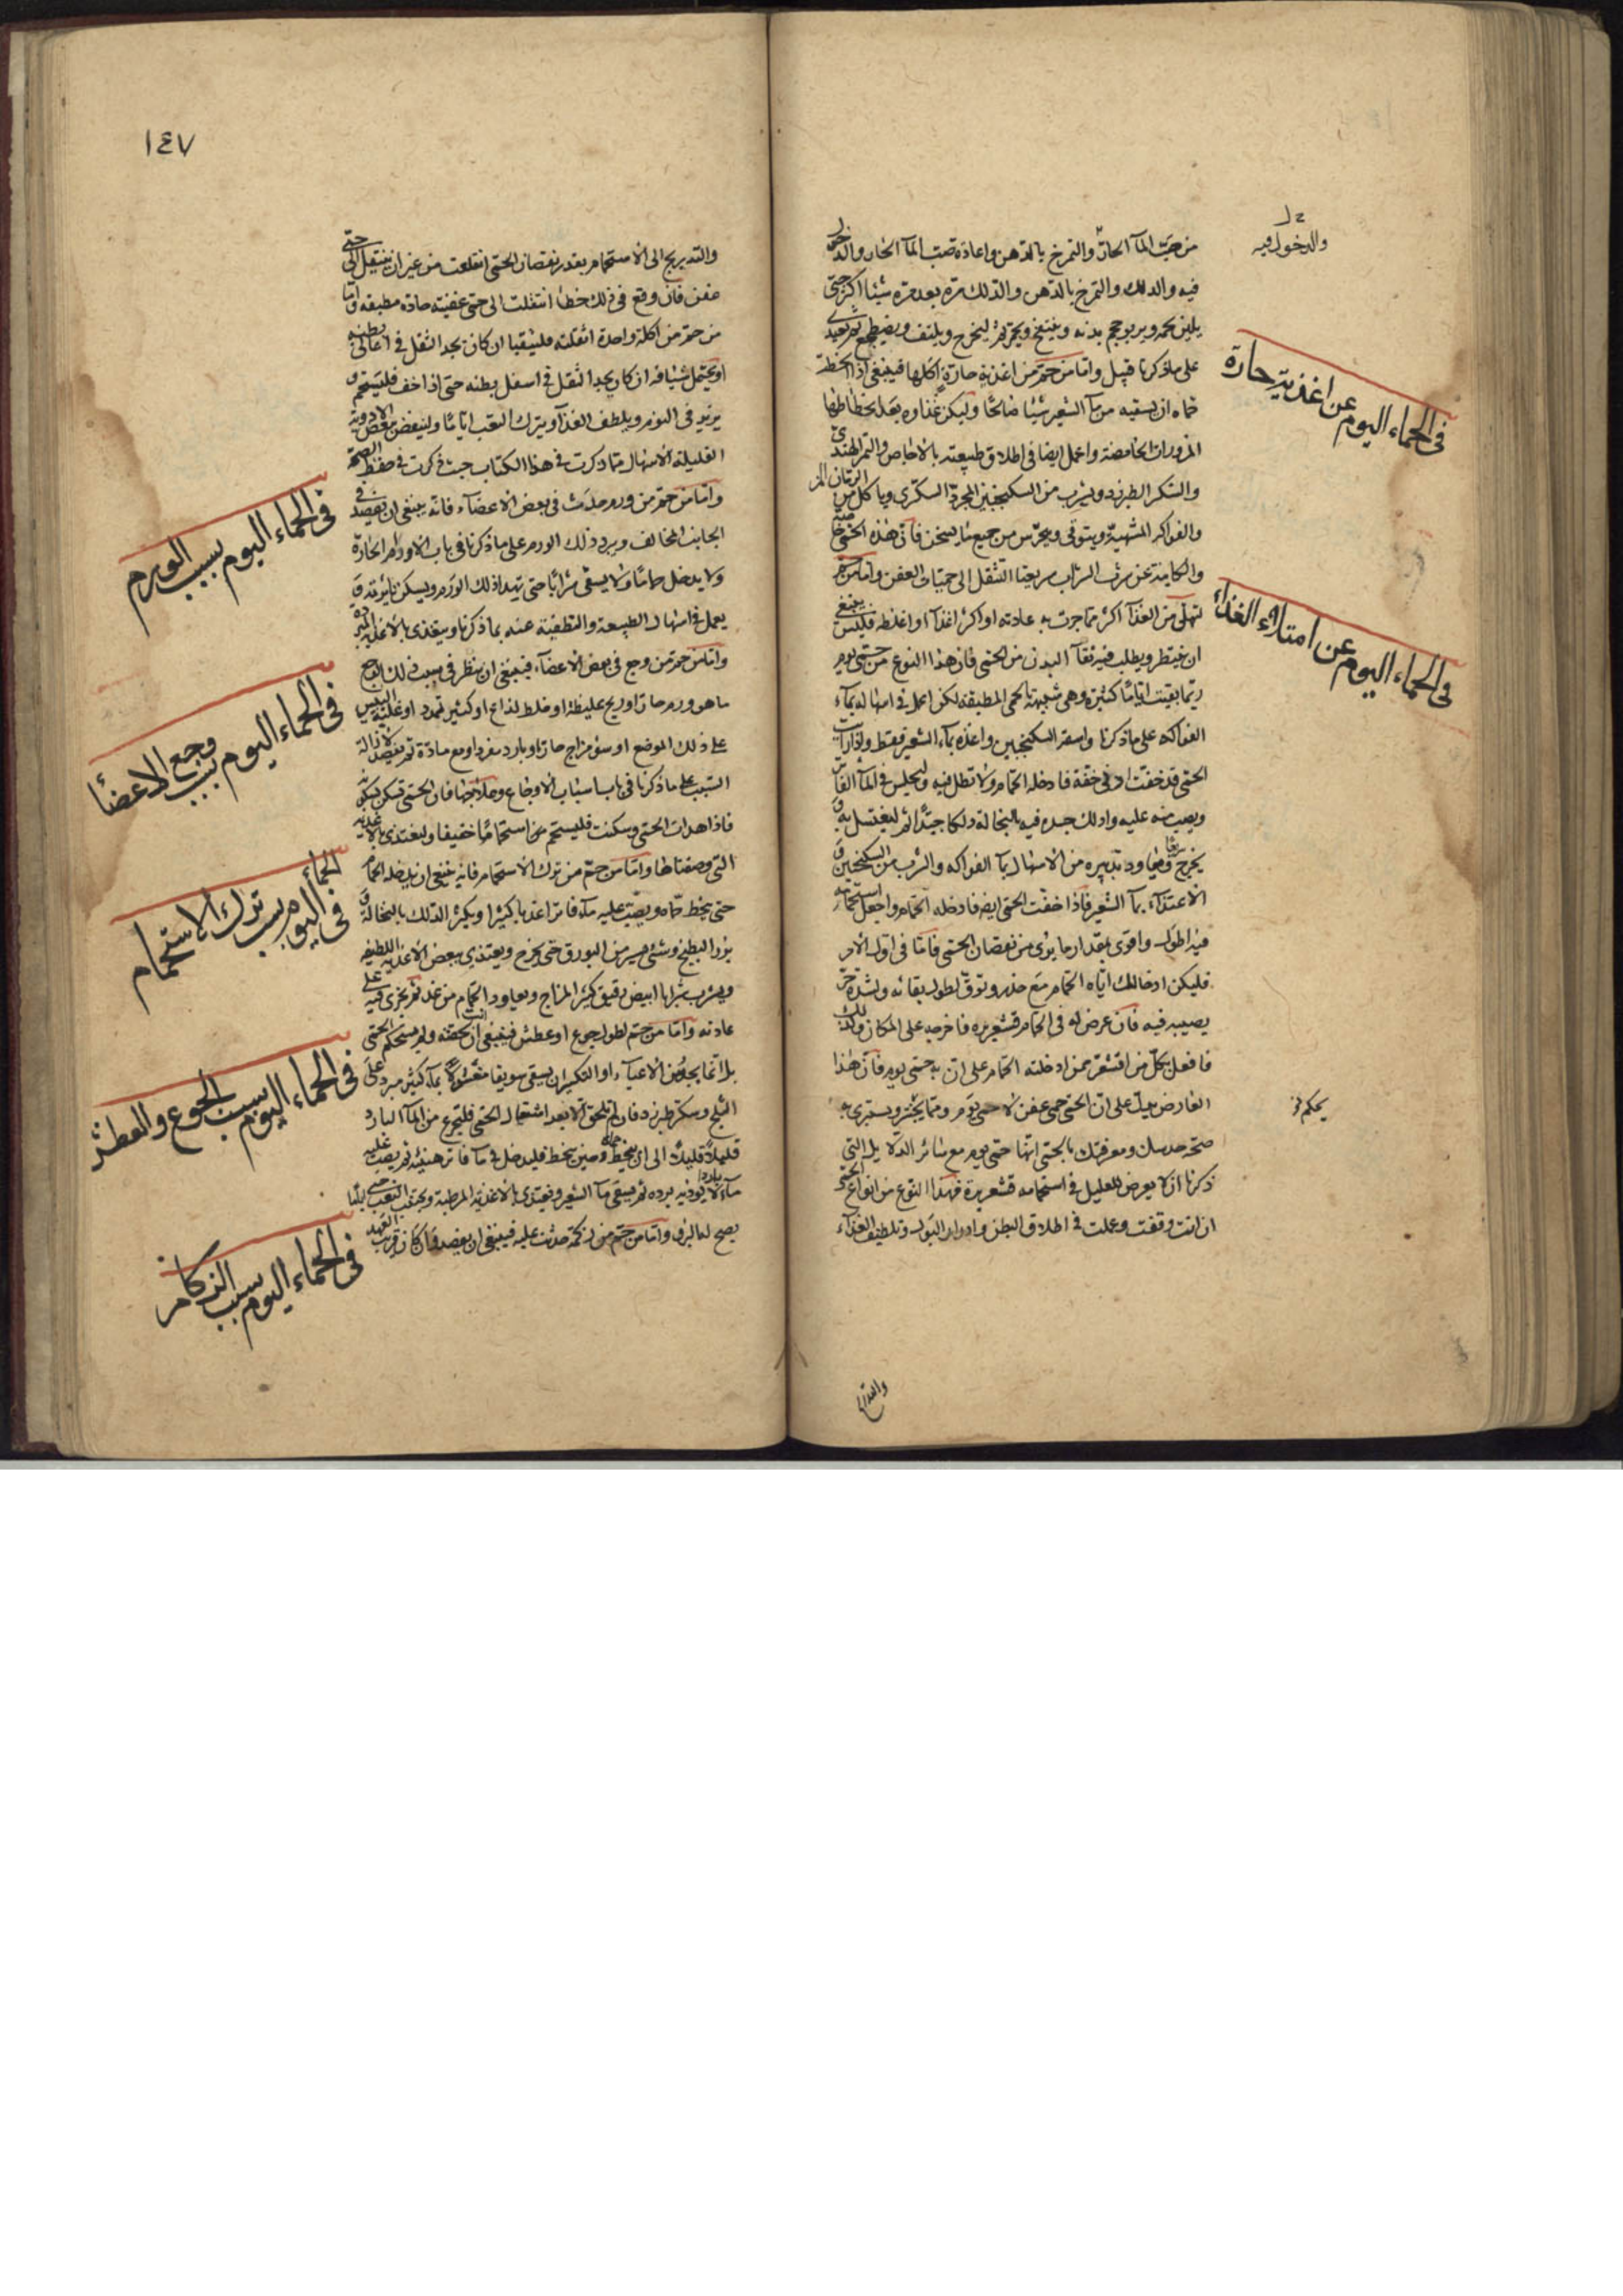 من صب المآ الحارّ والتمرخ بالدّهن واعادة صبّ المآ الحار والدخول
فيه والدلك والتمرخ بالدّهن والدّلك مرة بعد مرة شيئا اكثر حتى
يلين لحمه ويربو حجم بدنه وينتفخ ويحمرّ ثم ليخرج ويلتف ويضطجع ثم يغتدى
على ما ذكرنا قبيل وامّا من حمّ من اغذية حارة اكلها فينبغى اذا انحطت
حماه ان يسقيه من مآ الشعير شيئا صالحًا وليكن غذاوه بعد انحطاطها
المزورات الحامضة واعمل ايضا فى اطلاق طبيعته بالاجاص والتمر الهندىّ
والسّكر الطبرزد ويشرب من السكنجبين المجرد السكّرى وياكل من الرمّان المز
والفواكه المشهيّة ويتوقى ويحترس من جميع ما يسخن فانّ هذه الحمّى خاصّة
والكاينة عن شرب الشراب سريعتا التنقل الى حميّات العفن وامّا من حمّ
لتملّى من الغذآ اكثر ممّا جرت به عادته او اكثر اغذآ او اغلظه فليس ينبغى
ان ينتظر ويطلب فيه نقآ البدن من الحمّى فان هذا النوع من حمّى يوم
ربّما بقيت ايّامًا كثيرة وهى شبيهة بالحمى المطبقة لكن اعمل فى اسهاله بمآء
الفواكه على ما ذكرنا واسقه السكنجبين واغذه بمآء الشعير فقط واذا رايت
الحمّى قد خفّت ادنى خفّة فادخله الحمّام ولا تطل فيه وليجلس فى المآ الفاتر
ويصب منه عليه وادلك جسده فيه بالنخالة دلكا جيّدًا ثم ليغتسل به و
يخرج وعاود تدبيره من الاسهال بمآ الفواكه والشرب من السكنجبين و
الاغتذآء بمآ الشعير فاذا خفّت الحمّى ايضا فادخله الحمّام واجعل استحمامه
فيه اطول واقوى بمقدار ما يرى من نقصان الحمّى فامّا فى اوّل الامر
فليكن ادخالك ايّاه الحمّام مع حذر وتوقّ لطول بقائه ولشدة حرّ
يصيبه فيه فان عرض له فى الحمّام قشعريره فاخرجه على المكان وكذلك
فافعل بكلّ من اقشعرّ ممن ادخلته الحمّام على انّ به حمّى يوم فان هذا
العارض يدلّ على انّ الحمّى حمى عفن لا حمى يوم وممّا يختبر ويستبرى به
صحّة حدسك ومعرفتك بالحمّى انّها حمّى يوم مع سائر الدّلايل التى
ذكرنا ان لا يعرض للعليل فى استحمامه قشعريرة فهذا النوع من انواع الحمّى
ان انت وقفت وعملت فى اطلاق البطن وادرار البول وتلطيف الغذآء
والدخول فيه
فى الحماء اليوم عن اغذية حارة
فى الحماء اليوم عن امتلاء الغذاء
١٤٧
والتدريج الى الاستحمام بقدر نقصان الحمّى انقلعت من غير ان ينتقل الى حمّى
عفن فان وقع فى ذلك خطا انتقلت الى حمّى عفنيّة حادة مطبقه وامّا
من حمّ من اكلة واحدة اثقلته فليتقيا ان كان يجد الثقل فى اعالى بطنه
او يحتمل شيافه ان كان يجد الثقل فى اسفل بطنه حتى اذا خف فليستحمّ و
يزيد فى النوم ويلطف الغذآ ويترك التعب ايّامًا ولينفض ببعض الادوية
القليلة الاسهال ممّا ذكرت فى هذا الكتاب حيث ذكرت فى حفظ الصحّة
وامّا من حمّ من ورم حدث فى بعض الاعضآء فانّه ينبغى ان يفصد فى
الجانب المخالف ويبرد ذلك الورم على ما ذكرنا فى باب الاورام الحارّة
ولا يدخل حمّامًا ولا يسقى شرابًا حتى يهدا ذلك الورم ويسكن نايرته و
يعمل فى اسهال الطبيعة والتطفية عنه بما ذكرنا ويغتدى بالاغذية المبرّدة
وامّا من حمّ من وجع فى بعض الاعضآء فينبغى ان ينظر فى سبب ذلك الوجع
ما هو ورم حار او ريح غليظة او خلط لذاع او كثير تمدد او غلبة اليبس
على ذلك الموضع او سؤ مزاج حار او بارد مفرد او مع مادّة ثم يقصد لازالة
السّبب على ما ذكرنا فى باب اسباب الاوجاع وعلاجها فان الحمّى تسكن
فاذا هدات الحمّى وسكنت فليستحم من استحمامًا خفيفا وليغتدى بالاغذية
التى وصفناها وامّا من حمّ من ترك الاستحمام فانّه ينبغى ان يدخله الحمّام
حتى ينحط حمّاه ويصبّ عليه مآء فاتر اعذبا كثيرا ويكثر الدّلك بالنخالة و
بزر البطيخ وشئ يسير من البورق حتى يخرج ويغتذى ببعض الاغذية اللطيفه
ويشرب شرابا ابيض رقيق كثير المزاج ويعاود الحمّام من غد ثم يجرى فيه على
عادته وامّا من حمّ لطول جوع او عطش فينبغى ان لحقته ولم تستحكم الحمّى
بل انّما يجد من الاعيآء او التكسّر ان يسقى سويقا مغسولًا بمآء كثير مبرد على
الثلج وسكر طبرزد فان لم تلحق الا بعد اشتعال الحمّى فليتجرع من المآ البارد
قليلًا قليلًا الى ان ينحط حماه وحين ينحط فليدخل فى مآ فاتر هنيئة ثم يصب عليه
مآء باردا لا يؤذيه برده ثم يسقى مآ الشعير ويغتدى بالاغذية المرطبة ويجتنب التعب
يصح له البرؤ وامّا من حمّ من زكمة حدثت عليه فينبغى ان يفصد ان كان قريب العهد
فى الحماء اليوم بسبب الورم
فى الحماء اليوم بسبب وجع الاعضأ
فى الحمأ اليوم بسبب ترك الاستحمام
فى الحماء اليوم بسبب الجوع والعطش
فى الحماء اليوم بسبب الزكام